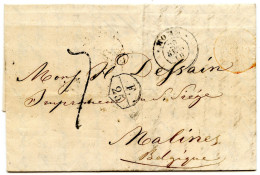 Mons. H. Dessain
Imprimeur du St. Siège
Malines
Belgique
F.
25